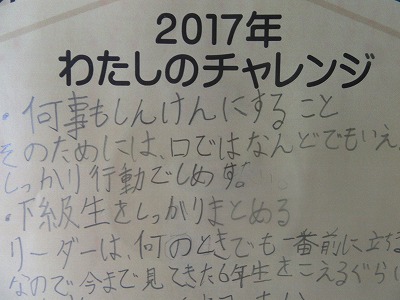 2017年
わたしのチャレンジ
・何事もしんけんにすること
そのためには、口ではなんどでもいえ
しっかり行動でしめす。
・下級生をしっかりまとめる
リーダーは、何のときでも一番前に立ちな
なので、今まで見てきた6年生をこえるぐらい